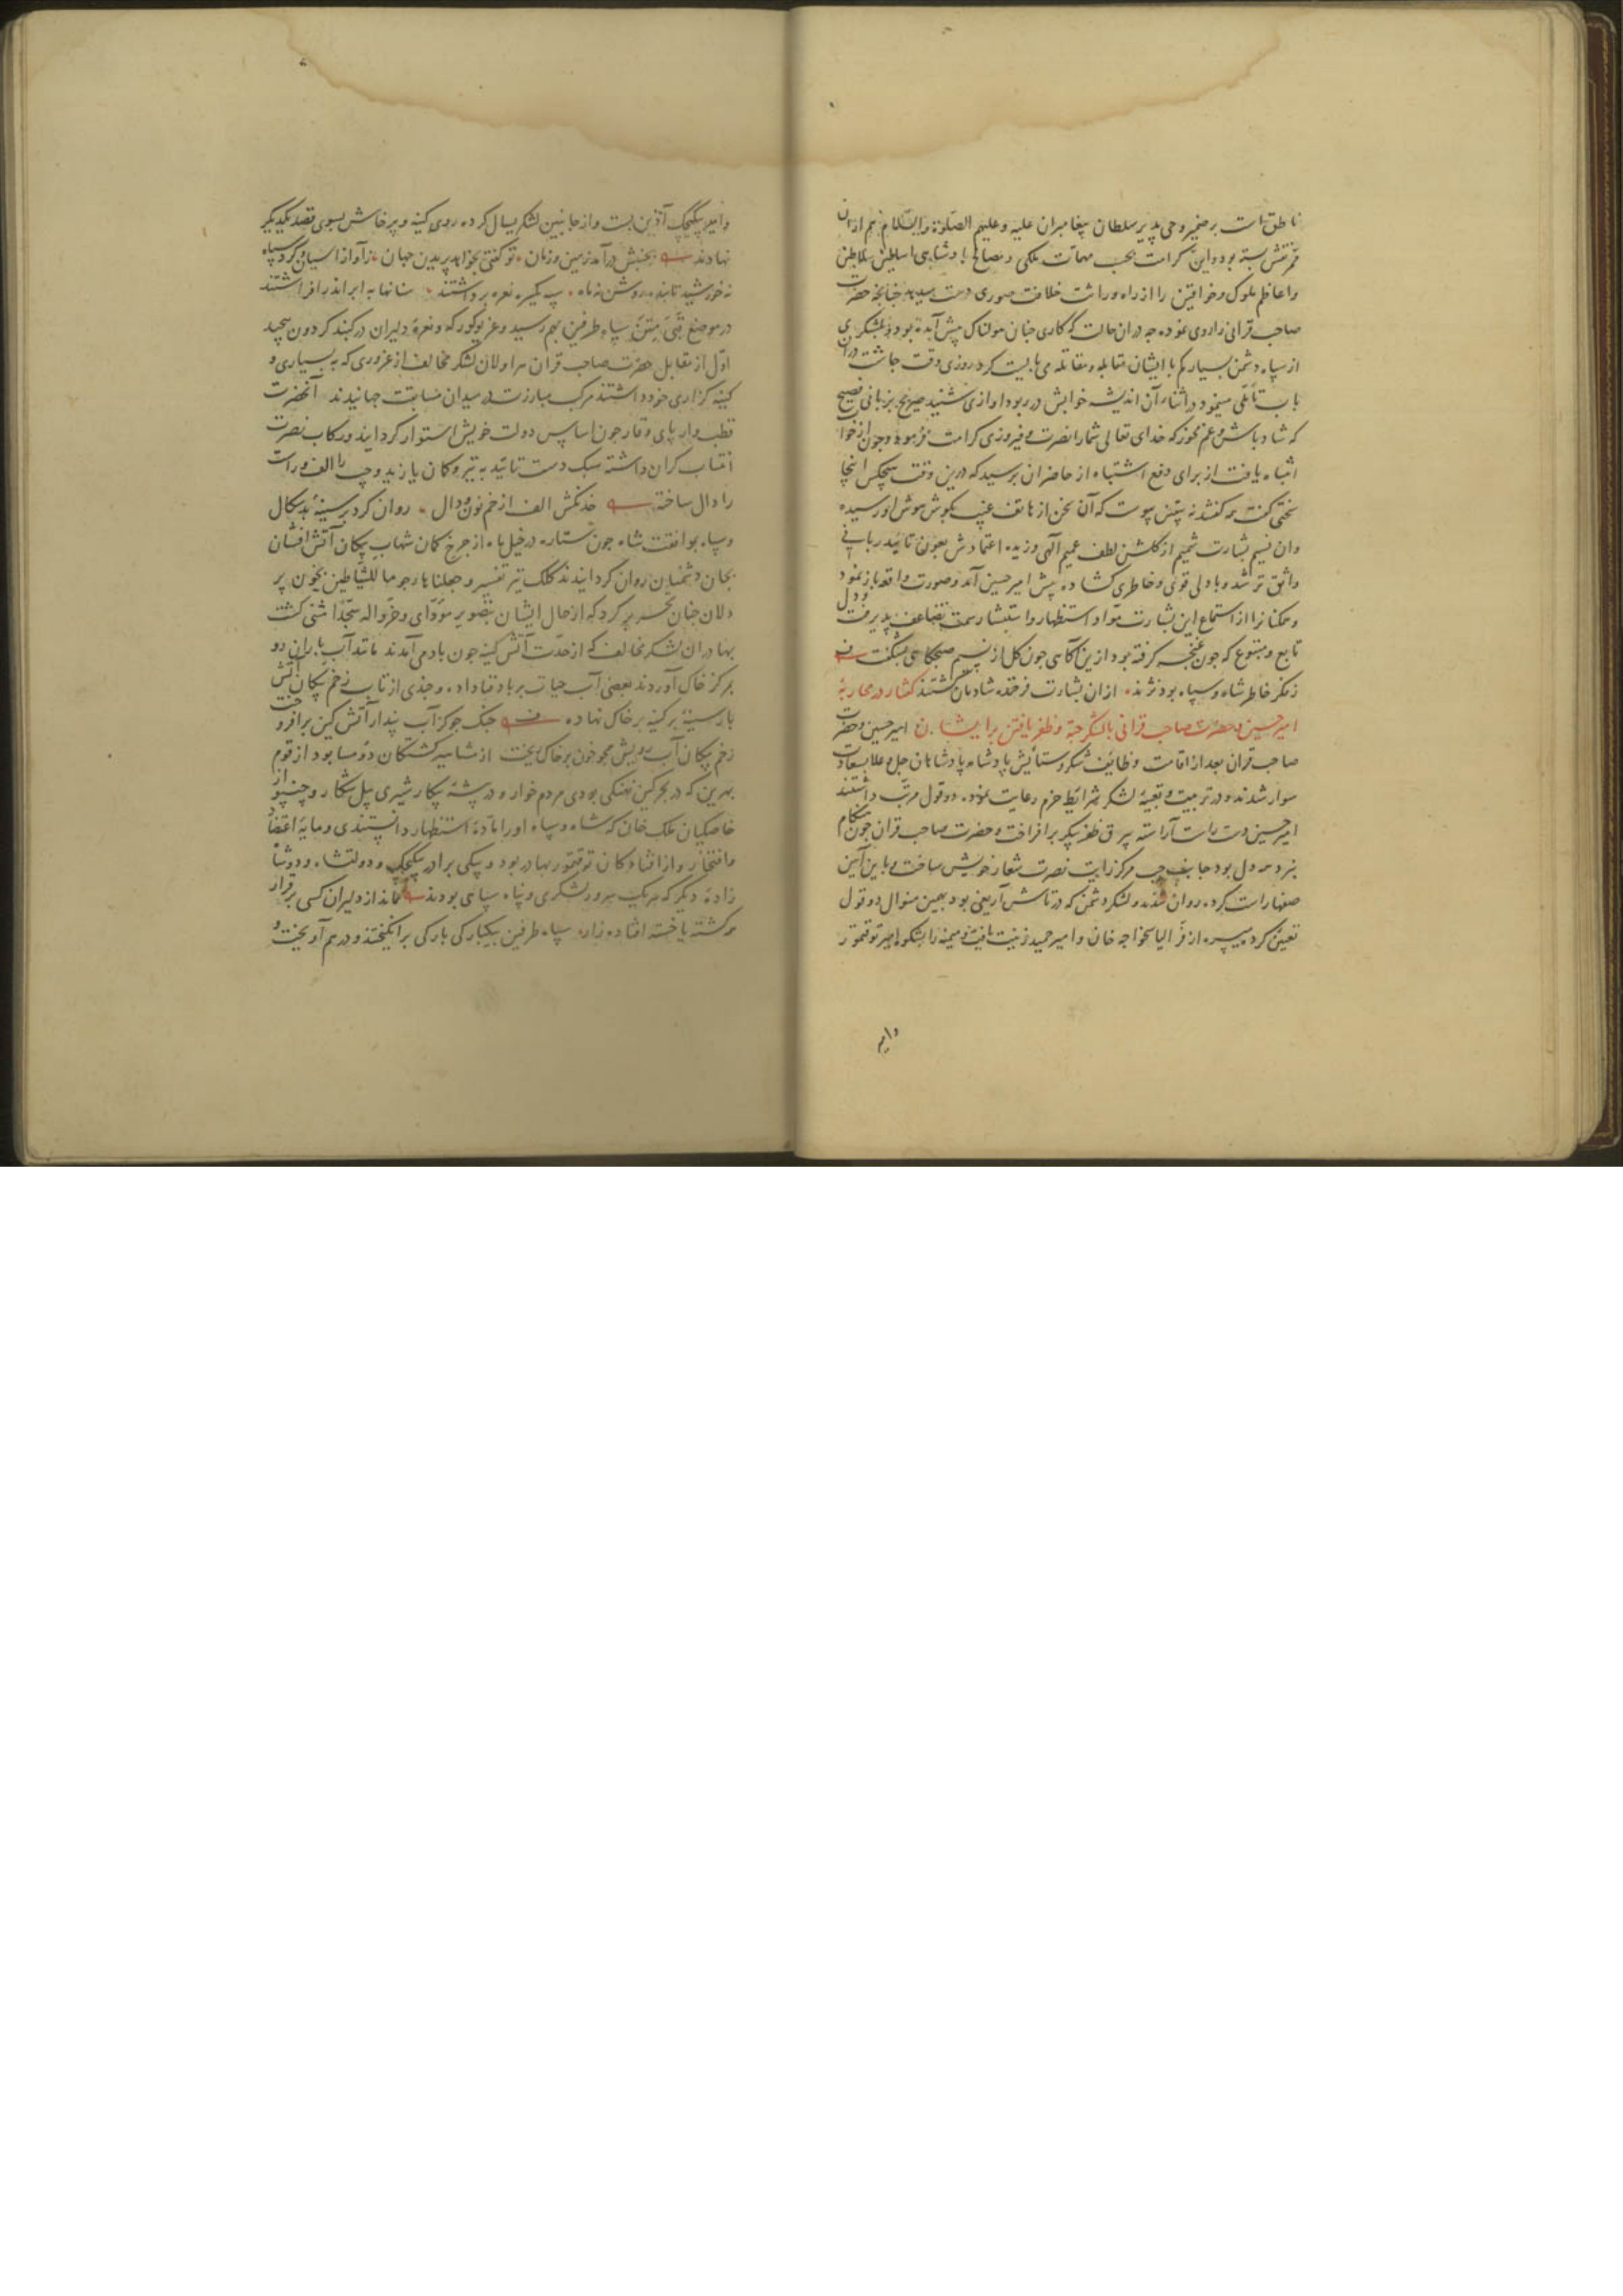 ناطق است بر ضمیر وحی پذیر سلطان پیغامبران علیه و علیهم الصلوة والسلام هم ازان
نقش بسته بود و این کرامت بحسب مهمات ملکی و مصالح پادشاهی اساطین سلاطین
و اعاظم ملوک و خواقین را از راه وراثت خلافت صوری دست میدهد چنانچه حضرت
صاحب قرانی را روی نموده چه دران حالت که کاری چنان هولناک پیش آمده بود و بلشکری
از سپاه دشمن بسیار کم با ایشان مقابله و مقاتله می بایست کرد روزی وقت چاشت دران
باب تأملی مینمود در اثناء آن اندیشه خوابش در ربود و اوازی شنید صریح بزبانی فصیح
که شاد باش و غم مخور که خدای تعالی شما را نصرت و فیروزی کرامت فرمود و چون از خواب
انتباه یافت از برای دفع اشتباه از حاضران پرسید که درین وقت هیچکس اینجا
سخنی گفت همه گفتند نه بیقین پیوست که آن سخن از هاتف غیب بگوش هوش او رسیده
وان نسیم بشارت شمیم از گلشن لطف عمیم الهی وزیده اعتمادش بعون تائید ربانی
واثق تر شد و با دلی قوی و خاطری گشاده پیش امیر حسین آمد و صورت واقعه باز نمود
و همکنانرا از استماع این بشارت مواد استظهار و استبشار سمت تضاعف پذیرفت و دل
تابع و متبوع که چون غنچه گرفته بود ازین آگاهی چون گل از نسیم صبحگاهی بشکفت
ز فکر خاطر شاه و سپاه بود نژند ازان بشارت فرخنده شادمان گشتند گفتار در محاربهٔ
امیر حسین و حضرت صاحب قرانی با لشکر جته و ظفر یافتن بر ایشان امیر حسین و حضرت
صاحب قران بعد از اقامت وظایف شکر و ستایش پادشاه پادشاهان جل و علا بسعادت
سوار شدند و در تربیت و تعبیهٔ لشکر شرایط حزم رعایت نمود دو قول مرتب داشتند
امیر حسین دست راست آراسته بیرق ظفر پیکر برافراخت و حضرت صاحب قران چون هنگام
نبرد همه دل بود جانب چپ مرکز رایت نصرت شعار خویش ساخت و باین آیین
صفها راست کرده روان شدند و لشکر دشمن که در تاش اریغی بود بهمین منوال دو قول
تعیین کرد میسره از فر الیاسخواجه خان و امیر حمید زینت یافت و میمنه را بشکوه امیر توقتمور
وامیر
وامیر بیکیجک آذین بست و از جانبین لشکر یسال کرده روی کینه و پرخاش بسوی قصد یکدیگر
نهادند بجنبش درآمد زمین و زمان تو گفتی بخواهد پریدن جهان ز آواز اسبان و گرد سپاه
نه خورشید تابنده روشن نه ماه سپه یکسره نعره برداشتند سنانها به ابر اندر افراشتند
در موضع قبی متن سپاه طرفین بهم رسید و غریو کورکه و نعرهٔ دلیران در گنبد گردون پیچید
اول از مقابل حضرت صاحب قران هراولان لشکر مخالف از غروری که به بسیاری و
کینه گزاری خود داشتند مرکب مبارزت در میدان مسابقت جهانیدند آنحضرت
قطب وار پای وقار چون اساس دولت خویش استوار گردانید و رکاب نصرت
انتساب گران داشته سبک دست تائید به تیر و کمان یازید و چپ را الف و راست
را دال ساخته خدنگش الف از خم نون و دال روان کرد بر سینهٔ بدسگال
و سپاه بموافقت شاه چون ستاره در خیل ماه از چرخ کمان شهاب پیکان آتش افشان
بجان دشمنان روان گردانیدند کلک تیر تفسیر وجعلناها رجوما للشیاطین بخون پر
دلان چنان تحریر کرد که از حال ایشان تصویر مؤدای وخروا له سجدا مثنی گشت
بهادران لشکر مخالف که از حدت آتش کینه چون باد می آمدند مانند آب باران رو
بمرکز خاک آوردند بعضی آب حیات برباد فنا داده و چندی از تاب زخم پیکان آتش
بار سینهٔ پر کینه بر خاک نهاده جنگ جو کز آب پندار آتش کین برافروخت
زخم پیکان آب رویش همچو خون بر خاک ریخت از مشاهیر کشتگان دو سا بود از قوم
بهرین که در بحر کین نهنگی بودی مردم خوار و در پشتهٔ پیکار شیری پیل شکار و چنپو از
خاصگیان ملک خان که شاه و سپاه او را مادهٔ استظهار دانستندی و مایهٔ اعتضاد
و افتخار و از افتادگان توقتمور بهادر بود و بیکی برادر بیکیجک و دولتشاه و دو شاه
زادهٔ دیگر که هریک سرور لشکری و پناه سپاهی بودند نماند از دلیران کسی برقرار
همه کشته یا خسته افتاده زار سپاه طرفین بیکبارگی بارگی برانگیختند و درهم آویخت و